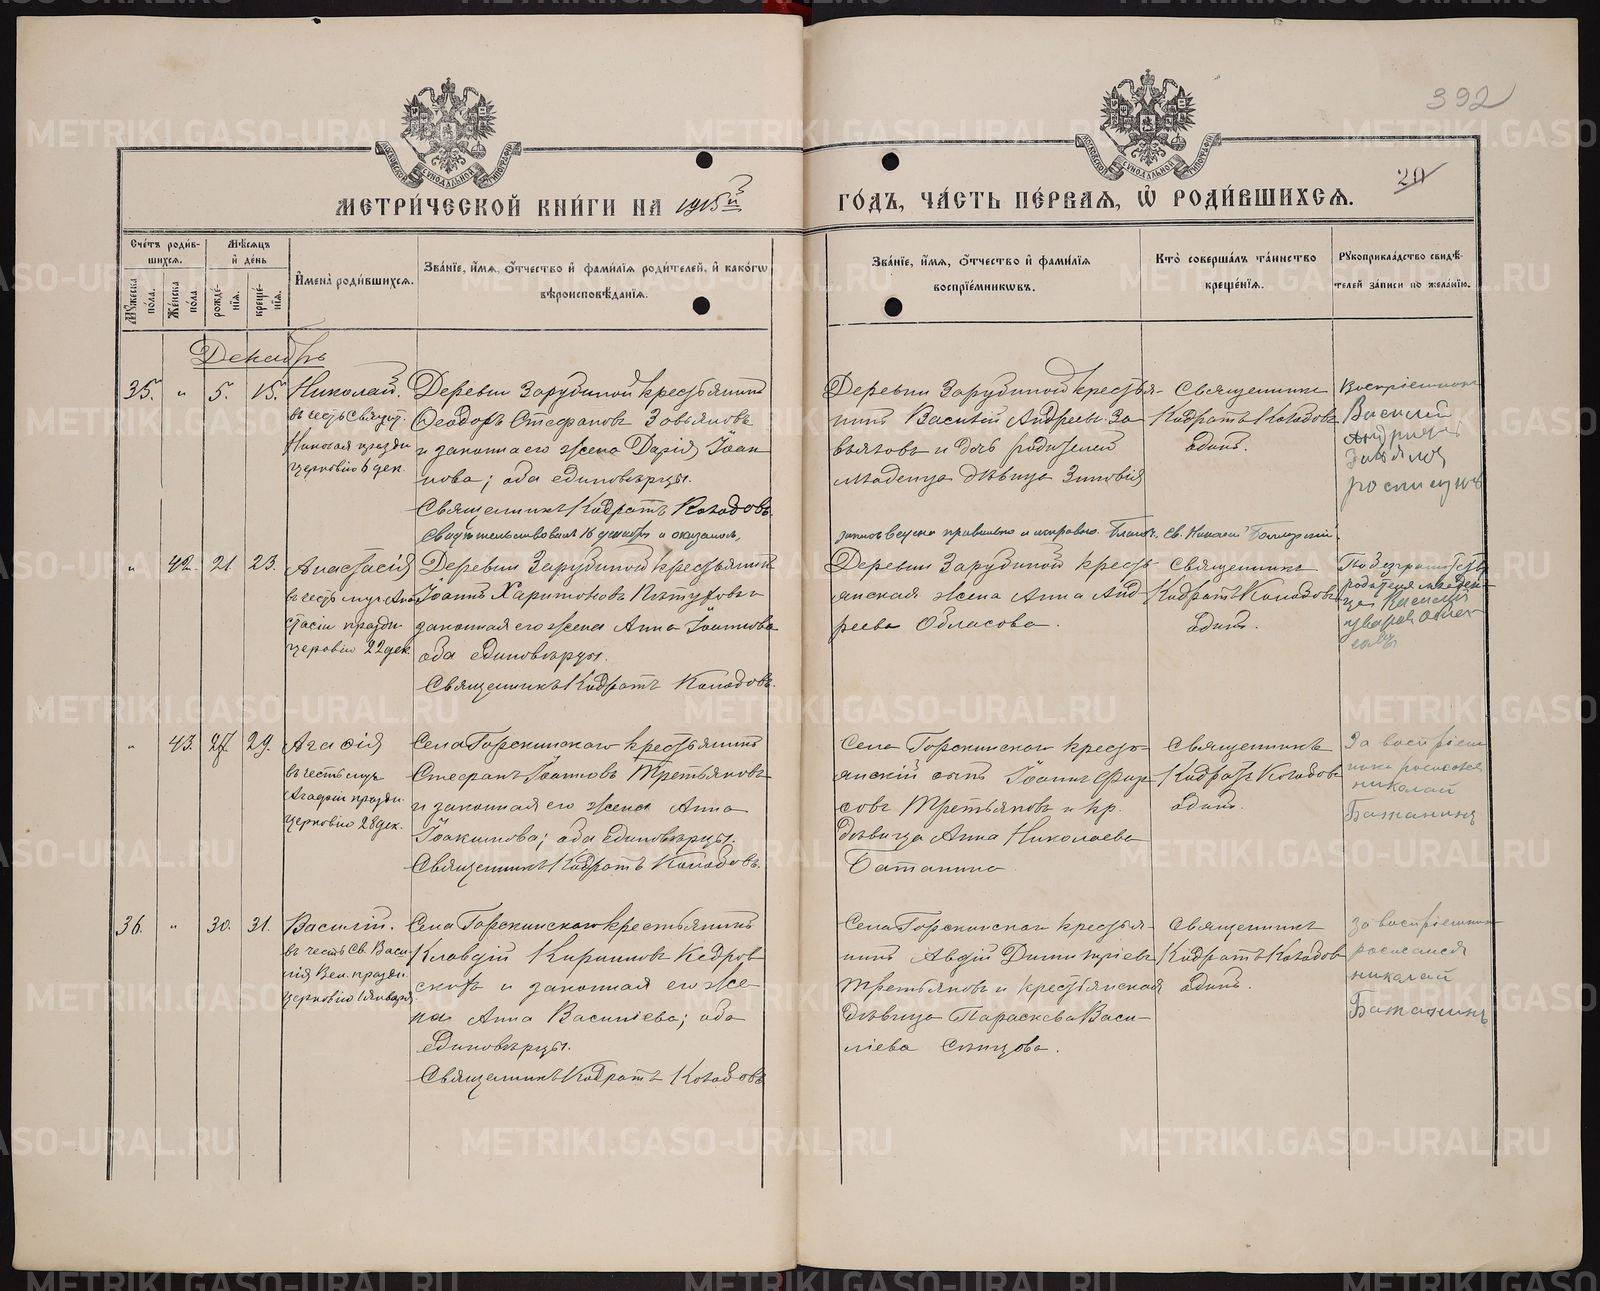 392
20
МЕТРИ́ЧЕСКОЙ КНИ́ГИ НА 1915й
ГО́ДЪ, ЧА́СТЬ ПЕ́РВАѦ, Ѡ҆ РОДИ́ВШИХСѦ.
Сче́тъ роди́в-
шихсѧ.
Мꙋ́жеска
по́ла.
Же́нска
по́ла
Мѣ́сѧцъ
и҆ де́нь
рожде́-
нїѧ.
креще́-
нїѧ.
И҆мена̀ роди́вшихсѧ.
Зва́нїе, и҆́мѧ, ѻ҆́тчество и҆ фами́лїѧ роди́телей, и҆ како́гѡ
вѣроисповѣ́данїѧ.
Зва́нїе, и҆́мѧ, ѻ҆́тчество и҆ фами́лїѧ
воспрїе́мникѡвъ.
Кто̀ соверша́лъ та́инство
креще́нїѧ.
Рꙋкоприкла́дство свидѣ́-
телей за́писи по жела́нїю.
Декабрь
35. " 5. 15. Николай.
въ честь Святит.
Николая праздн.
церковію 6 дек.
Деревни Зарубиной крестьянинъ
Ѳеодоръ Стефановъ Завьяловъ
и законная его жена Дарія Іоан
нова; оба единовѣрцы.
Священникъ Кодратъ Колодовъ.
Свидѣтельствовалъ 16 декабря и оказалось,
Деревни Зарубиной крестья-
нинъ Василій Андреевъ За
вьяловъ и дочь родителей
младенца дѣвица Зиновія
запись ведена правильно и исправно. Благоч. Св. Николай
Священникъ
Кодратъ Колодовъ
одинъ.
Воспріемникъ
Василий
Андриевъ
Завялов
росписуюсь
" 42. 21. 23. Анастасія
въ честь муч. Ана
стасіи праздн.
церковію 22 дек.
Деревни Зарубиной крестьянинъ
Іоаннъ Харитоновъ Пѣтуховъ
законная его жена Анна Іоаннова
оба единовѣрцы.
Священникъ Кодратъ Колодовъ.
Деревни Зарубиной кресть-
янская жена Анна Анд
реева Обласова.
Священникъ
Кодратъ Колодовъ
одинъ.
родителя младен-
ца
" 43. 27. 29. Агафія
въ честь муч.
Агафіи праздн.
церковію 28 дек.
Села Горскинскаго крестьянинъ
Стефанъ Іоанновъ Третьяковъ
и законная его жена Анна
Іоакимова; оба единовѣрцы.
Священникъ Кодратъ Колодовъ.
Села Горскинскаго кресть-
янскій сынъ Іоаннъ Фир
совъ Третьяковъ и кр.
дѣвица Анна Николаева
Батанина
Священникъ
Кодратъ Колодовъ
одинъ.
За воспріем
николай
Батанинъ
36. " 30. 31. Василій.
въ честь Св. Васи
лія Вел. праздн.
церковію 1 января
Села Горскинскаго крестьянинъ
Клавдій Кириловъ Кедров
скихъ и законная его же-
на Анна Васильева; оба
единовѣрцы.
Священникъ Кодратъ Колодовъ
Села Горскинскаго крестья-
нинъ Авдій Димитріевъ
Третьяковъ и крестьянская
дѣвица Параскева Васи-
ліева Сѣнцова.
Священникъ
Кодратъ Колодовъ
одинъ.
За воспріемник
росписался
николай
Батанинъ
METRIKI.GASO-URAL.RU